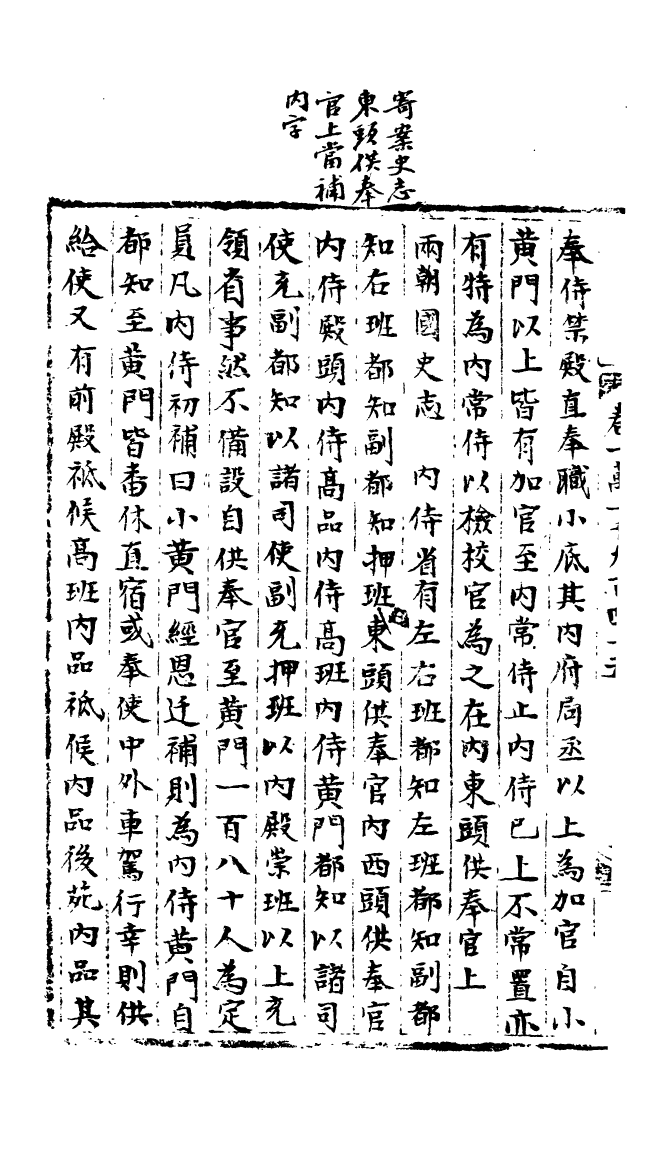 寄案史志
東頭供奉
官上當補
内字
奉侍禁殿直奉職小底其内府局丞以上為加官自小
黄門以上皆有加官至内常侍止内侍已上不常置亦
有特為内常侍以檢校官為之在内東頭供奉官上
兩朝國史志 内侍省有左右班都知左班都知副都
知右班都知副都知押班東頭供奉官内西頭供奉官
内侍殿頭内侍髙品内侍髙班内侍黄門都知以諸司
使充副都知以諸司使副充押班以内殿崇班以上充
領省事然不備設自供奉官至黄門一百八十人為定
員凡内侍初補曰小黄門經恩迁補則為内侍黄門自
都知至黄門皆番休直宿或奉使中外車駕行幸則供
給使又有前殿祗候髙班内品祗候内品後苑内品其